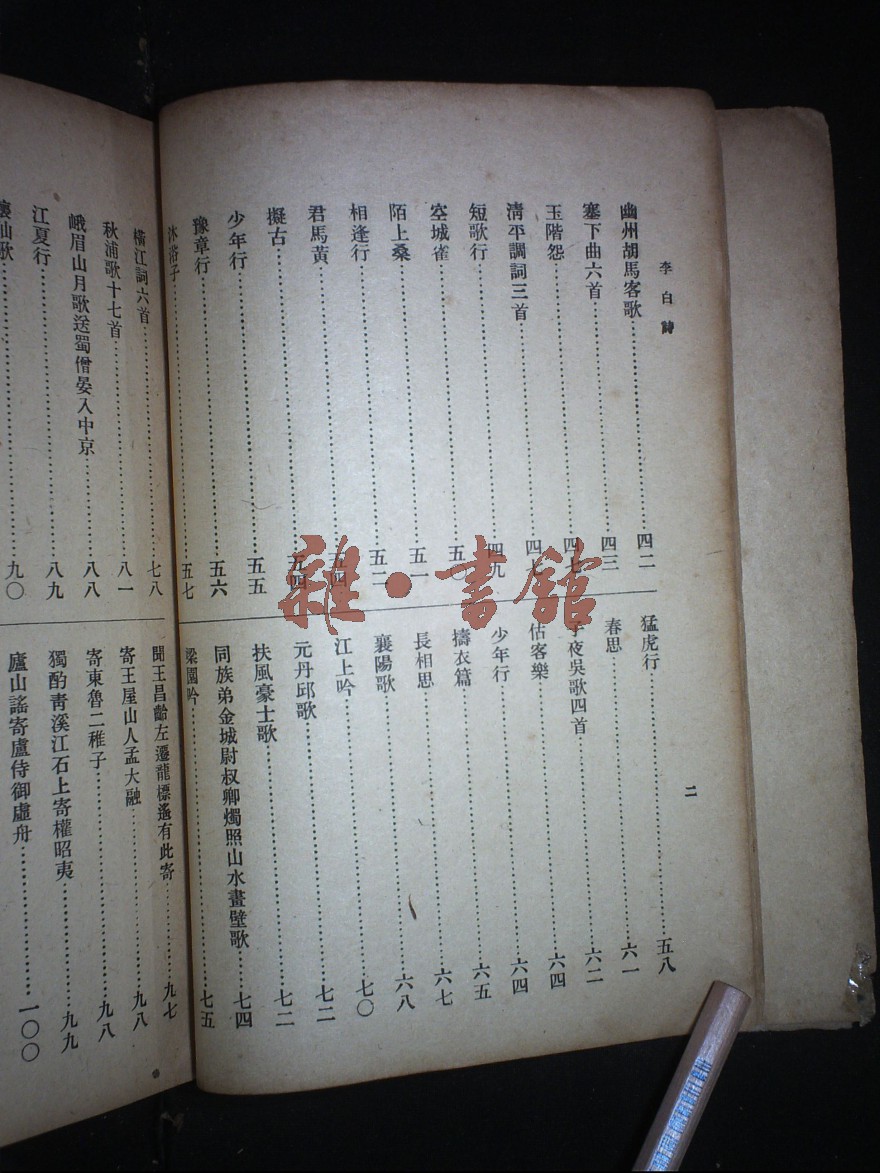 李白詩
幽州胡馬客歌……四二
塞下曲六首……四三
玉階怨……四七
淸平調詞三首……四七
短歌行……四九
空城雀……五〇
陌上桑……五一
相逢行……五二
君馬黃……五四
擬古……五四
少年行……五五
豫章行……五六
沐浴子……五七
猛虎行……五八
春思……六一
子夜吳歌四首……六二
估客樂……六四
少年行……六四
擣衣篇……六五
長相思……六七
襄陽歌……六八
江上吟……七〇
元丹邱歌……七二
扶風豪士歌……七二
同族弟金城尉叔卿燭照山水畫壁歌……七四
梁園吟……七五
二
橫江詞六首……七八
秋浦歌十七首……八一
峨眉山月歌送蜀僧晏入中京……八八
江夏行……八九
山歌……九〇
聞王昌齡左遷龍標遙有此寄……九七
寄王屋山人孟大融……九八
寄東魯二稚子……九八
獨酌靑溪江石上寄權昭夷……九九
廬山謠寄盧侍御虛舟……一〇〇
雜·書館